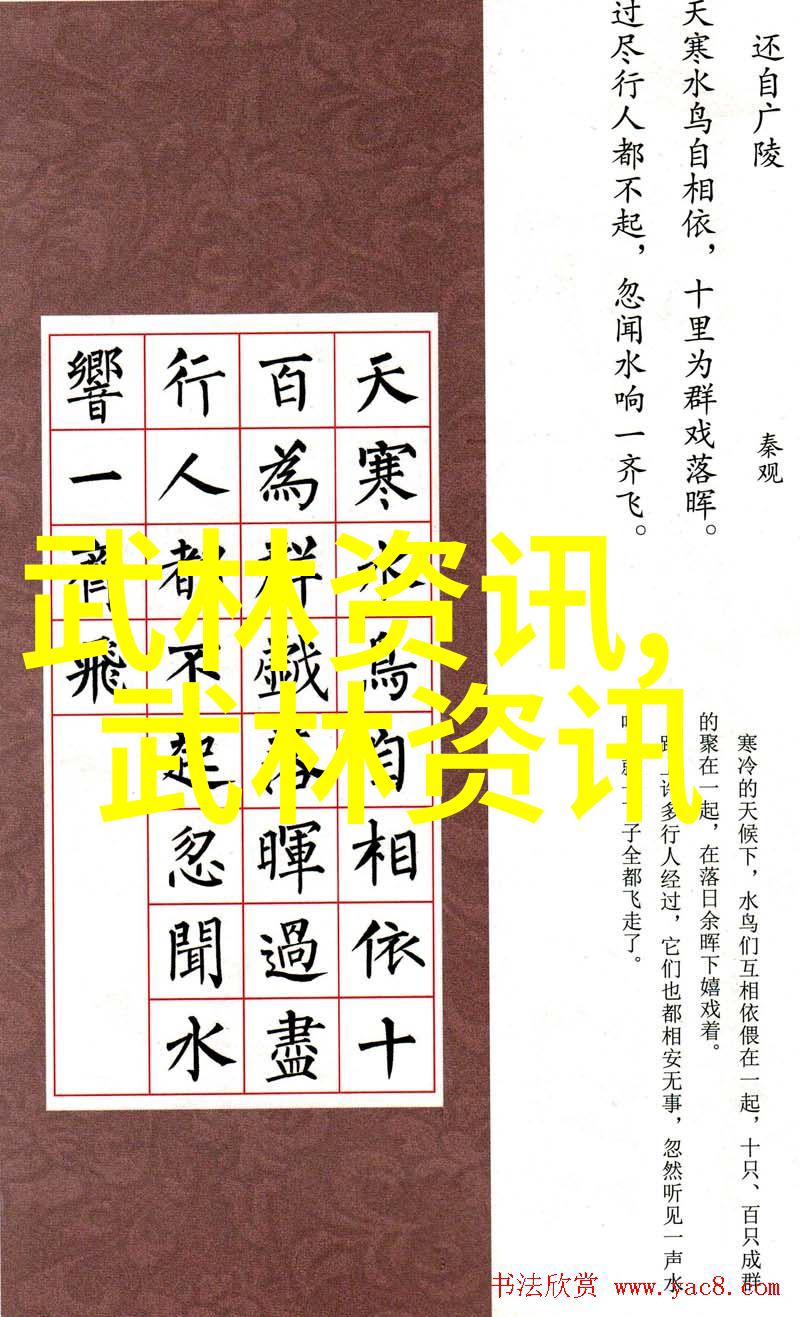 还自广陵
秦观
天寒水鸟自相依，十里为群戏落晖。
过尽行人都不起，忽闻水响一齐飞。
寒冷的天候下，水鸟们互相依偎在一起，十只、百只成群
的聚在一起，在落日余晖下嬉戏着。
许多行人经过，它们也都相安无事，忽然听见一声水
子全都飞走了。
天寒水鳥自相依十
百為群戲落暉過盡
行人都不起忽聞水
響一齊飛
武林资讯,
武林资讯
书法欣赏 www.yac8.com